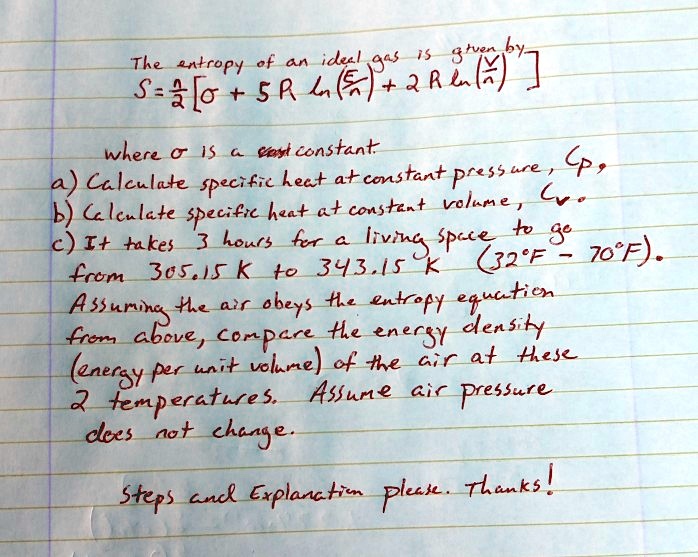 The entropy of an ideal gas is given by
S = n/2 [σ + 5 R ln(E/n) + 2 R ln(V/n)]
where σ is a constant.
a) Calculate specific heat at constant pressure, Cp,
b) Calculate specific heat at constant volume, Cv.
c) It takes 3 hours for a living space to go
from 305.15 K to 343.15 K (32°F - 70°F).
Assuming the air obeys the entropy equation
from above, compare the energy density
(energy per unit volume) of the air at these
2 temperatures. Assume air pressure
does not change.
Steps and Explanation please. Thanks!